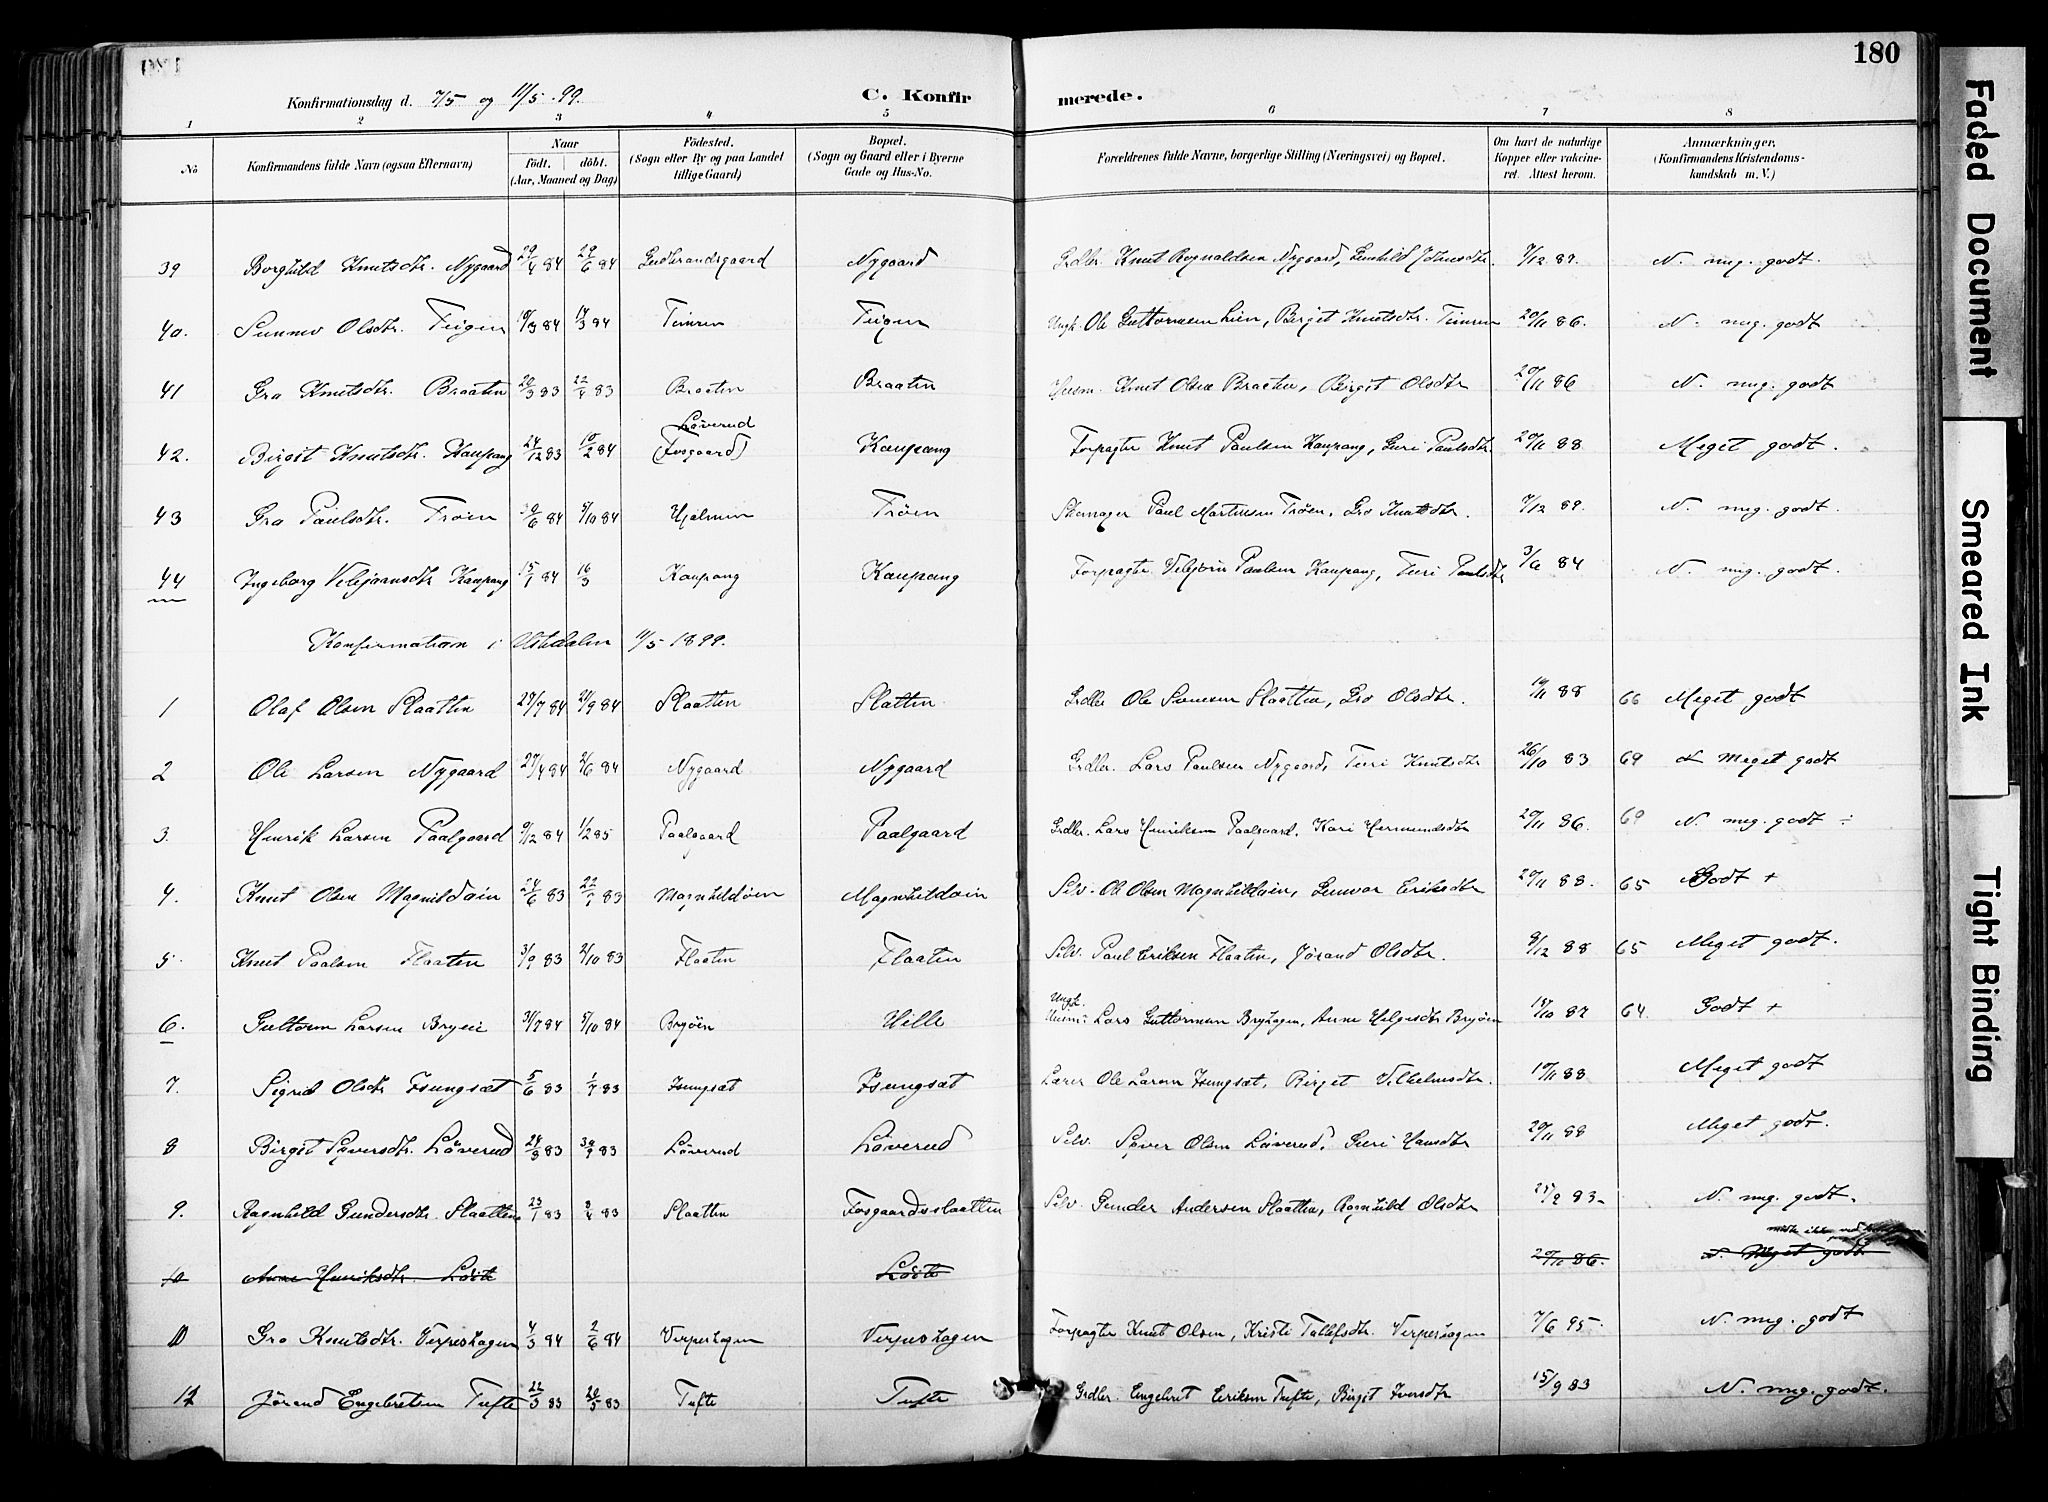 180
Konfirmationsdag d. 7/5 og 11/5 99. C. Konfirmerede.
1 2 3 4 5 6 7 8
No Konfirmandens fulde Navn (ogsaa Efternavn) Naar födt. döbt. (Aar, Maaned og Dag) Födested. (Sogn eller By og paa Landet tillige Gaard) Bopæl. (Sogn og Gaard eller i Byerne Gade og Hus-No. Forældrenes fulde Navne, borgerlige Stilling (Næringsvei) og Bopæl. Om havt de naturlige Kopper eller vakcineret. Attest herom. Anmærkninger, (Konfirmandens Kristendomskundskab m. V.)
39 Borghild Knutsdtr. Nygaard 29/4 84 29/6 84 Gudbrandsgaard Nygaard Grdbr. Knut Rognaldsen Nygaard, Gunhild 7/12 89. N. mg. godt.
40. Sunnev Olsdtr. Feigen 84 84 Timren Feigen Ungk. Ole Guttormsen Lien, Birget Knutsdtr. Timren 20/11 86. N. mg. godt
41 Gro Knutsdtr. Braaten 20/3 83 22/4 83 Braaten Braaten Husm. Knut Olsen Braaten, Birgit Olsdtr 20/11 86 N. mg. godt
42. Birgit Knutsdtr. Kaupang 24/12 83 10/2 84 Löverud (Fosgaard) Kaupang Forpagter Knut Paulsen Kaupang, Guri Paulsdtr. 20/11 88 Meget godt.
43 Gro Paulsdtr. Tröen 84 84 Hjelmen Tröen Skomager Paul Martinsen Tröen, Gro Knutsdtr. 7/12 89. N. mg. godt.
44 Ingeborg Kaupang 15/1 84 16/3 Kaupang Kaupang Forpagter Paulsen Kaupang, Turi Paulsdtr 3/6 84 N. mg. godt.
Konfirmation i Ustedalen 11/5 1899.
1 Olaf Olsen Slaatten 29/7 84 21/9 84 Slaatten Slatten Grdbr Ole Slaatten, Gro Olsdtr. 88 66 Meget godt
2 Ole Larsen Nygaard 27/4 84 2/6 84 Nygaard Nygaard Grdbr. Lars Paulsen Nygaard, Turi Knutsdtr 26/10 83 69 N Meget godt
3. Henrik Larsen Paalgaard 9/12 84 1/2 85 Paalgaard Paalgaard Grdbr. Lars Henriksen Paalgaard, Kari Hermundsdtr 20/11 86. 69 N. mg. godt ÷
4. Knut Olsen Magnhildöin 24/6 83 83 Magnhildöin Magnhildöin Selv. Ole Olsen Magnhildöin, Gunvor Eriksdtr 20/11 88. 65 Godt +
5. Knut Paalsen Flaaten 3/9 83 2/10 83 Flaaten Flaaten Selv. Paul Eriksen Flaaten, Jörand Olsdtr. 8/12 88 65 Meget godt.
6. Guttorm Larsen Bryöie 31/7 84 5/10 84 Bryöen Hille Ungk. Lars Guttormsen Bryhagen, Anne Helgesdtr Bryöen 87 64. Godt +
7. Sigrid Olsdtr Isungsæt 5/6 83 83 Isungsæt Isungsæt Lærer Ole Larsen Isungsæt, Birget Vilhelmsdtr. 88 Meget godt
8 Birgit Sæversdtr. Löverud 83 83 Löverud Löverud Selv. Sæver Olsen Löverud, Guri Hansdtr 20/11 88 Meget godt.
9. Ragnhild Gundersdtr. Slaatten 23/1 83 83 Slaatten Fosgaardsslaatten Selv. Gunder Andersen Slaatten, Ragnhild Olsdtr 83. N. mg. godt.
10 Anne Henriksdtr. 20/11 86. N. Meget godt
10 Gro Knutsdtr. Verpeshagen 4/3 84 2/6 84 Verpeshagen Verpeshagen Forpagter Knut Olsen, Kristi Tollefsdtr. Verpeshagen 7/6 95. N. mg. godt
12 Jörand Engebretsen Tufte 22/3 83 20/5 83 Tufte Tufte Grdbr. Engebret Eriksen Tufte, Birgit Iversdtr 15/9 83 N. mg. godt.
Faded Document
Smeared Ink
Tight Binding